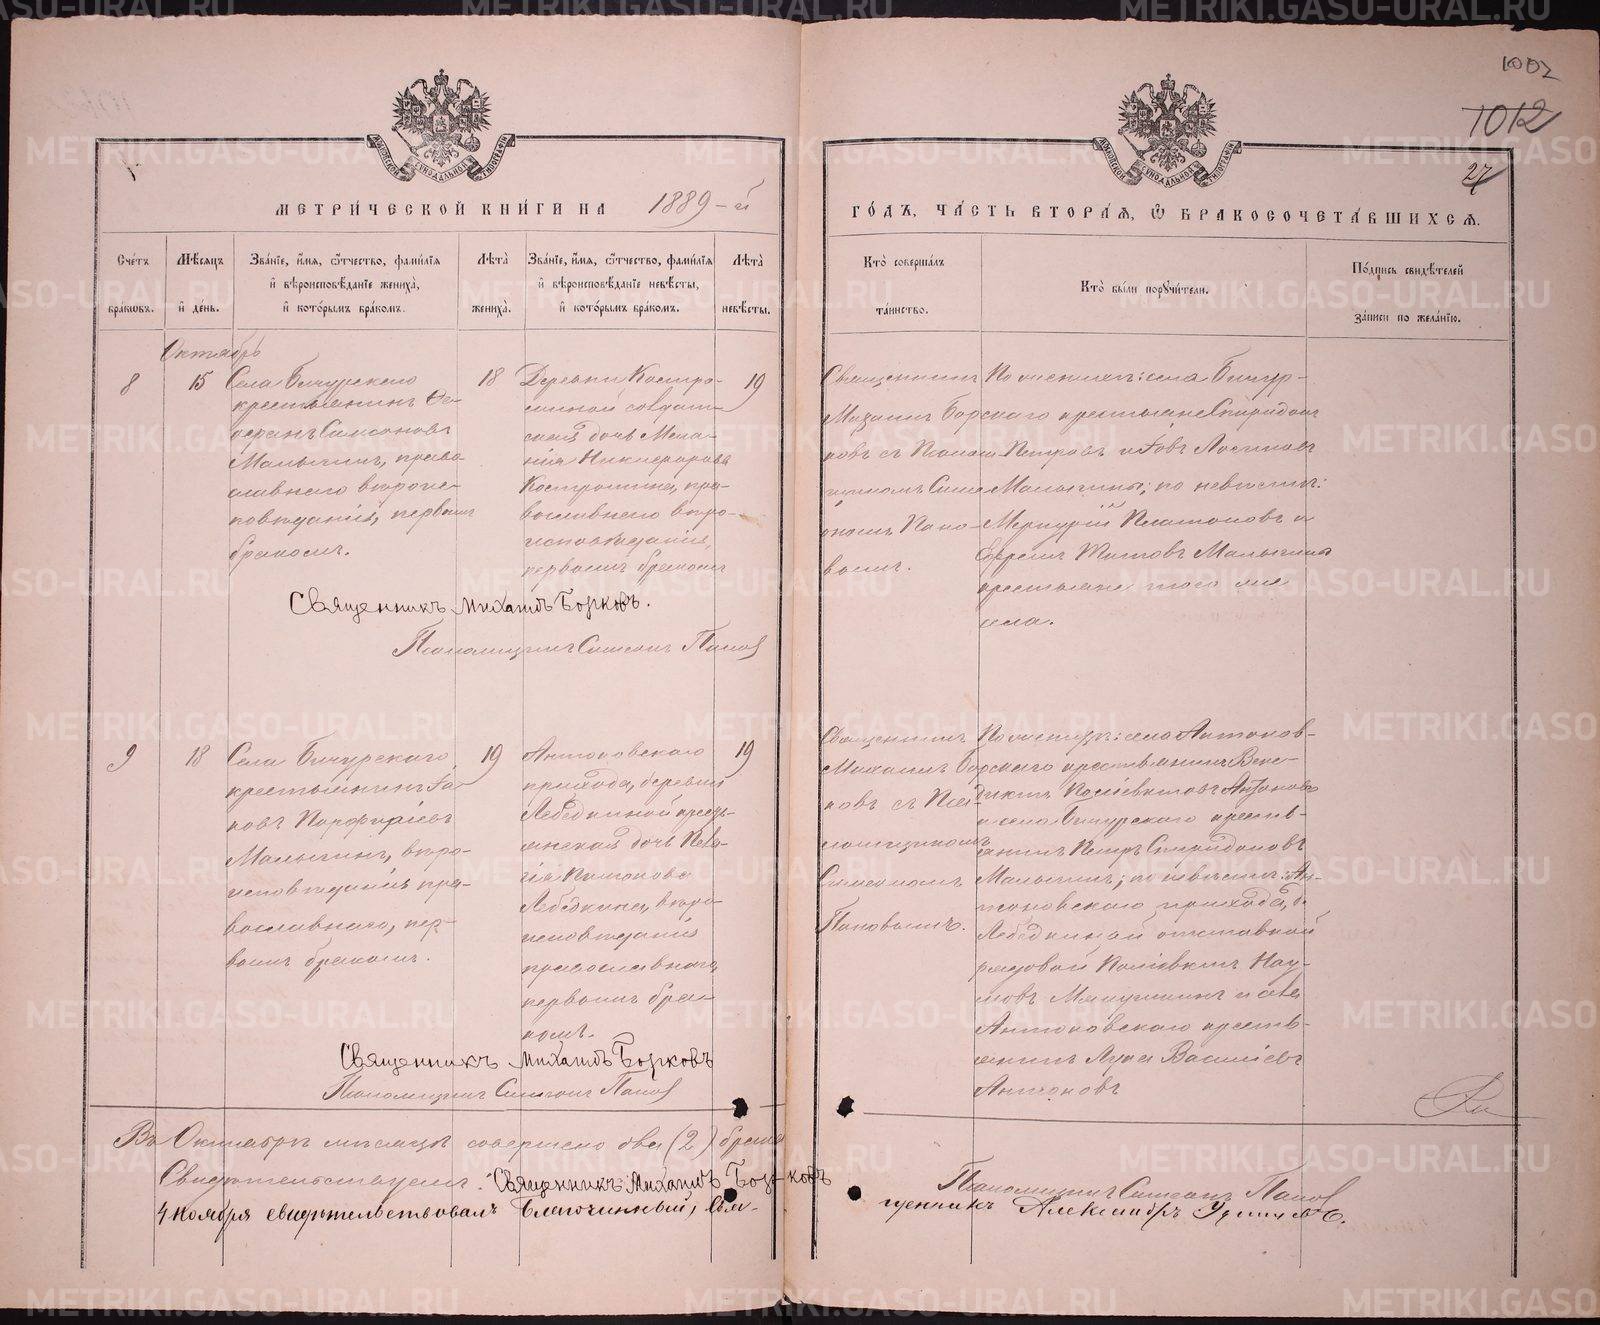 1002
1012
27
МОСКОВСКОЙ СѴНОДАЛЬНОЙ ТИПОГРАФІИ
МЕТРИ́ЧЕСКОЙ КНИ́ГИ НА 1889-й
ГО́ДЪ, ЧА́СТЬ ВТОРА́Я, Ѡ БРАКОСОЧЕТА́ВШИХСЯ.
Счéтъ бра́кѡвъ.
Мѣ́сяцъ и҆ де́нь.
Зва́нїе, и҆́мя, ѻ҆́тчество, фамилїя и҆ вѣроисповѣ́данїе жениха̀, и҆ кото́рымъ бра́комъ.
Лѣ́та жениха̀.
Зва́нїе, и҆́мя, ѻ҆́тчество, фамилїя и҆ вѣроисповѣ́данїе невѣ́сты, и҆ кото́рымъ бра́комъ.
Лѣ́та невѣ́сты.
Кто̀ соверша́лъ та́инство.
Кто̀ бы́ли порꙋчи́тели.
По́дпись свидѣ́телей за́писи по жела́нїю.
Октябрь
8
15
Села Бичурскаго
крестьянинъ Ѳе-
офанъ Самсоновъ
Малыгинъ, право
славнаго вѣроис-
повѣданія, первымъ
бракомъ.
18
Деревни Костро-
миной солдат-
ская дочь Мела-
нія Никифорова
Костромина, пра-
вославнаго вѣро-
исповѣданія,
первымъ бракомъ
19
Священникъ
Михаилъ Бор-
ковъ съ Псалом-
щикомъ Симе-
ономъ Попо-
вымъ.
По женихѣ: села Бичур-
скаго крестьяне Спиридонъ
Петровъ и Іовъ Логиновъ
Малыгины; по невѣстѣ:
Меркурій Платоновъ и
Ефремъ Титовъ Малыгины
крестьяне того же
села.
Священникъ Михаилъ Борковъ.
Псаломщикъ Симеонъ Поповъ
9
18
Села Бичурскаго
крестьянинъ Іа-
ковъ Порфиріевъ
Малыгинъ, вѣро-
исповѣданія пра-
вославнаго, пер-
вымъ бракомъ.
19
Антоновскаго
прихода, деревни
Лебёдкиной кресть-
янская дочь Пела-
гія
Лебёдкина, вѣро-
исповѣданія
православнаго,
первымъ бра-
комъ.
19
Священникъ
Михаилъ Бор-
ковъ съ Псал-
ломщикомъ
Симеономъ
Поповымъ.
По женихѣ: села Антонов-
скаго крестьянинъ Вене-
диктъ Поліевктовъ Антоновъ
и села Бичурскаго кресть-
янинъ Петръ Спиридоновъ
Малыгинъ; по невѣстѣ: Ан-
тоновскаго прихода, д.
Лебёдкиной отставной
рядовой Поліевктъ Нау-
мовъ и села
Антоновскаго кресть-
янинъ Лука Васильевъ
Антоновъ
Священникъ Михаилъ Борковъ
Псаломщикъ Симеонъ Поповъ
Въ Октябрѣ мѣсяцѣ совершено два (2) брака
Свидѣтельствуемъ: Священникъ Михаилъ Борковъ
Псаломщикъ Симеонъ Поповъ
4 Ноября свидѣтельствовалъ Благочинный, Свя-
щенникъ Александръ
METRIKI.GASO-URAL.RU